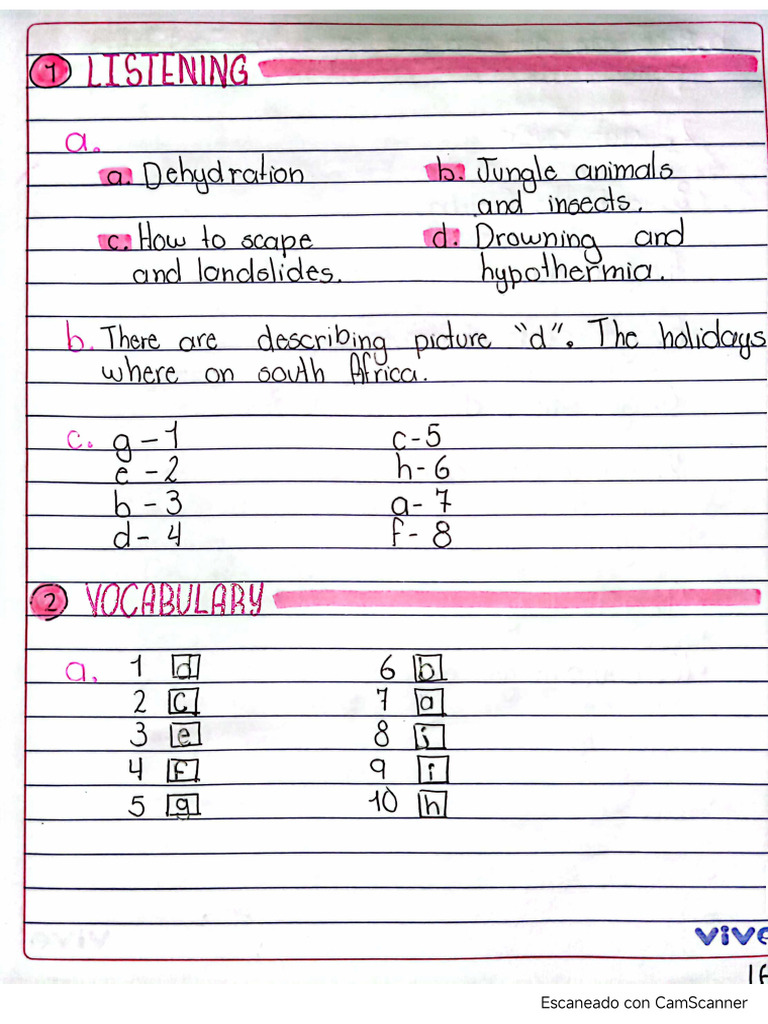 1 LISTENING
a.
a. Dehydration b. Jungle animals
and insects.
c. How to scape d. Drowning and
and landslides. hypothermia.
b. There are describing picture "d". The holidays
where on south Africa.
c. g - 1 c - 5
e - 2 h - 6
b - 3 a - 7
d - 4 f - 8
2 VOCABULARY
a. 1 d 6 b
2 c 7 a
3 e 8 j
4 f 9 i
5 g 10 h
vive
Escaneado con CamScanner